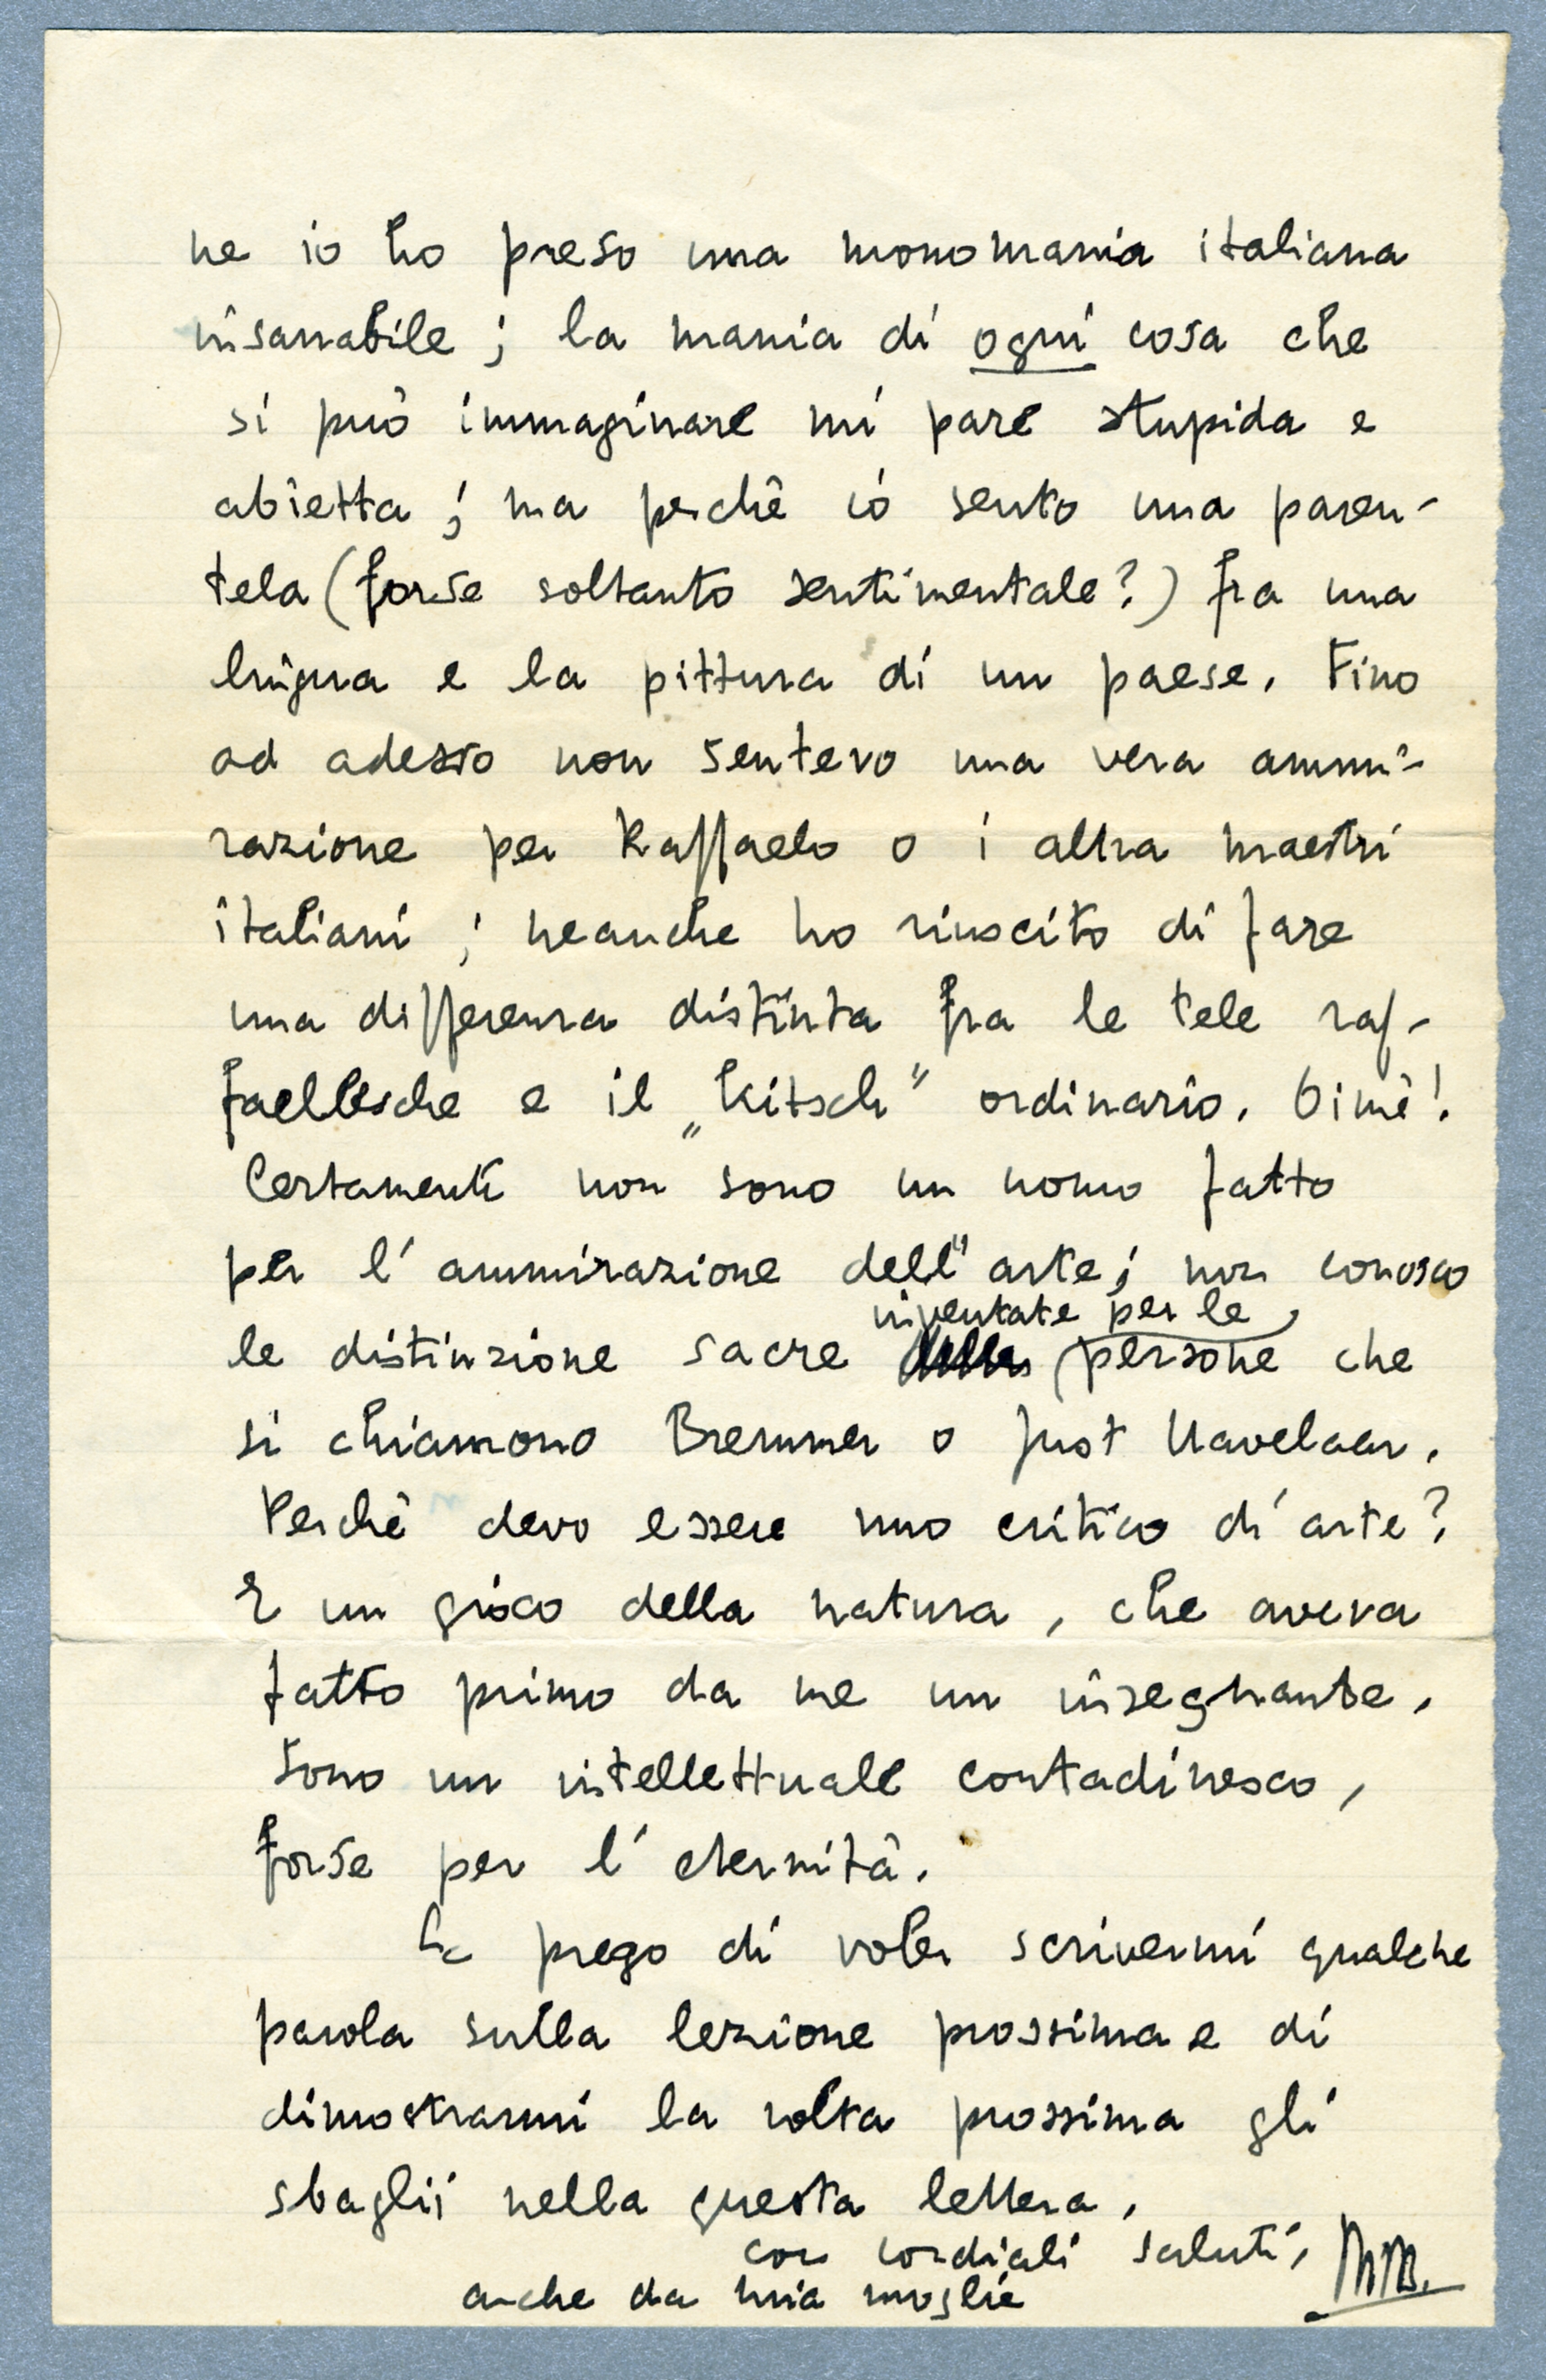 ne io ho preso una monomania italiana
insanabile ; la mania di ogni cosa che
si può immaginare mi pare stupida e
abietta ; ma perchè io sento una paren-
tela (forse soltanto sentimentale?) fra una
lingua e la pittura di un paese. Fino
ad adesso non sentevo una vera ammi-
razione per Raffaelo o i altra maestri
italiani ; neanche ho riuscito di fare
una differenza distinta fra le tele raf-
faellesche e il „Kitsch" ordinario. Oimè!
Certamente non sono un uomo fatto
per l'ammirazione dell'arte; non conosco
inventate per le
le distinzione sacre persone che
si chiamono Bremmer o Just Havelaar.
Perchè devo essere uno critico di arte?
È un gioco della natura, che aveva
fatto primo da me un insegnante.
Sono un intellettuale contadinesco,
forse per l'eternità.
La prego di voler scrivermi qualche
parola sulla lezione prossima e di
dimostrarmi la volta prossima gli
sbaglii nella questa lettera.
con cordiali saluti,
anche da mia moglie